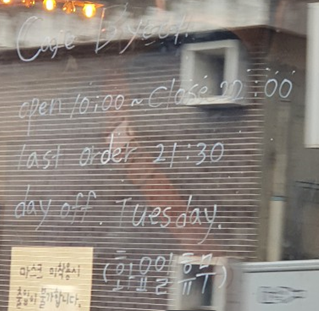 Cafe
open 10:00 ~ Close 22:00
last order 21:30
day off. Tuesday.
(화요일 휴무)
마스크 미착용시
출입이 불가합니다.